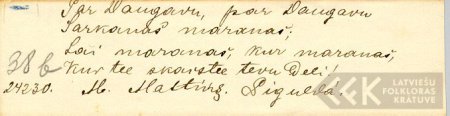 Par Daugavu, par Daugavu
Sarkanas maranas;
Lai maranas, kur maranas,
Kur tee skaistee tevu deli!
38 b
24230. M. Mattiss. Sigulda.
LATVIEŠU
FOLKLORAS
KRĀTUVE